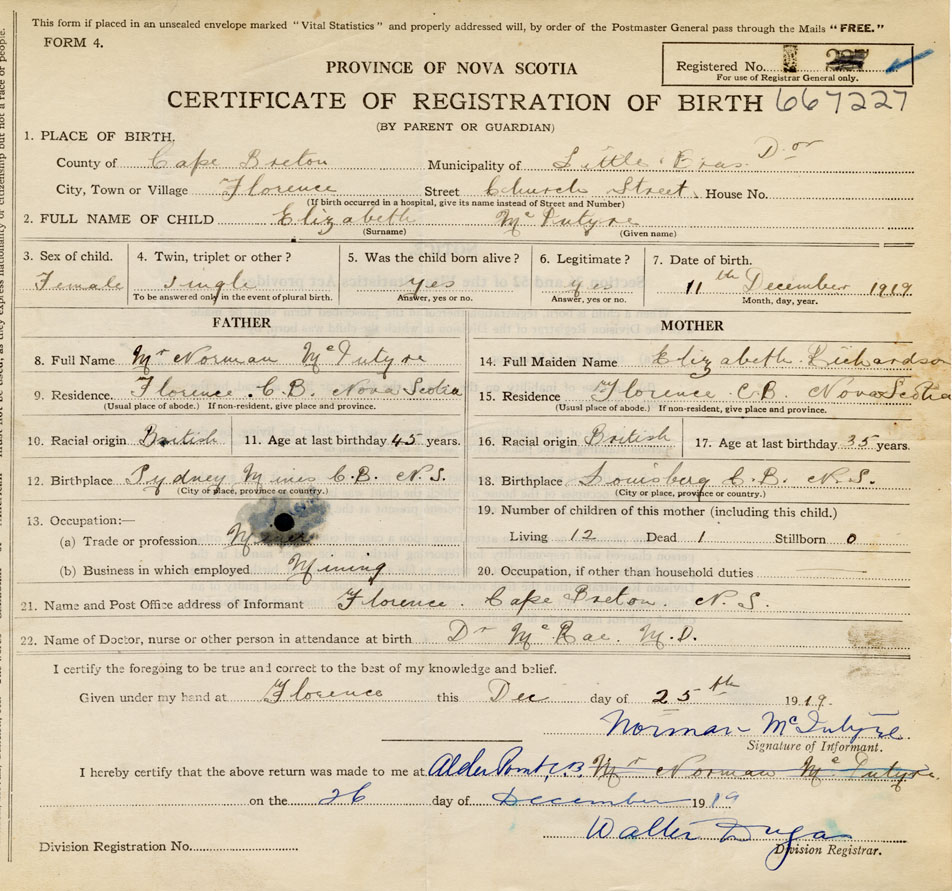 This form if placed in an unsealed envelope marked "Vital Statistics" and properly addressed will, by order of the Postmaster General pass through the Mails "FREE."
FORM 4.
Registered No.
For use of Registrar General only.
PROVINCE OF NOVA SCOTIA
CERTIFICATE OF REGISTRATION OF BIRTH 667227
(BY PARENT OR GUARDIAN)
1. PLACE OF BIRTH.
County of Cape Breton Municipality of Little Bras D'or
City, Town or Village Florence Street Church Street House No.
(If birth occurred in a hospital, give its name instead of Street and Number)
2. FULL NAME OF CHILD Elizabeth McIntyre
(Surname) (Given name)
3. Sex of child. 4. Twin, triplet or other? 5. Was the child born alive? 6. Legitimate? 7. Date of birth.
Female single yes yes 11th December 1919
To be answered only in the event of plural birth. Answer, yes or no. Answer, yes or no. Month, day, year.
FATHER MOTHER
8. Full Name Mr Norman McIntyre 14. Full Maiden Name Elizabeth Richardson
9. Residence Florence C.B. Nova Scotia 15. Residence Florence C.B. Nova Scotia
(Usual place of abode.) If non-resident, give place and province. (Usual place of abode.) If non-resident, give place and province.
10. Racial origin British 11. Age at last birthday 45 years. 16. Racial origin British 17. Age at last birthday 35 years.
12. Birthplace Sydney Mines C.B. N.S. 18. Birthplace Louisberg C.B. N.S.
(City or place, province or country.) (City or place, province or country.)
13. Occupation:— 19. Number of children of this mother (including this child.)
(a) Trade or profession Miner Living 12 Dead 1 Stillborn 0
(b) Business in which employed Mining 20. Occupation, if other than household duties
21. Name and Post Office address of Informant Florence. Cape Breton. N.S.
22. Name of Doctor, nurse or other person in attendance at birth Dr McRae. M.D.
I certify the foregoing to be true and correct to the best of my knowledge and belief.
Given under my hand at Florence this Dec day of 25th 1919.
Norman McIntyre
Signature of Informant.
I hereby certify that the above return was made to me at Alder Point, C.B. Mr Norman McIntyre.
on the 26 day of December 1919
Walter Duga
Division Registration No. Division Registrar.